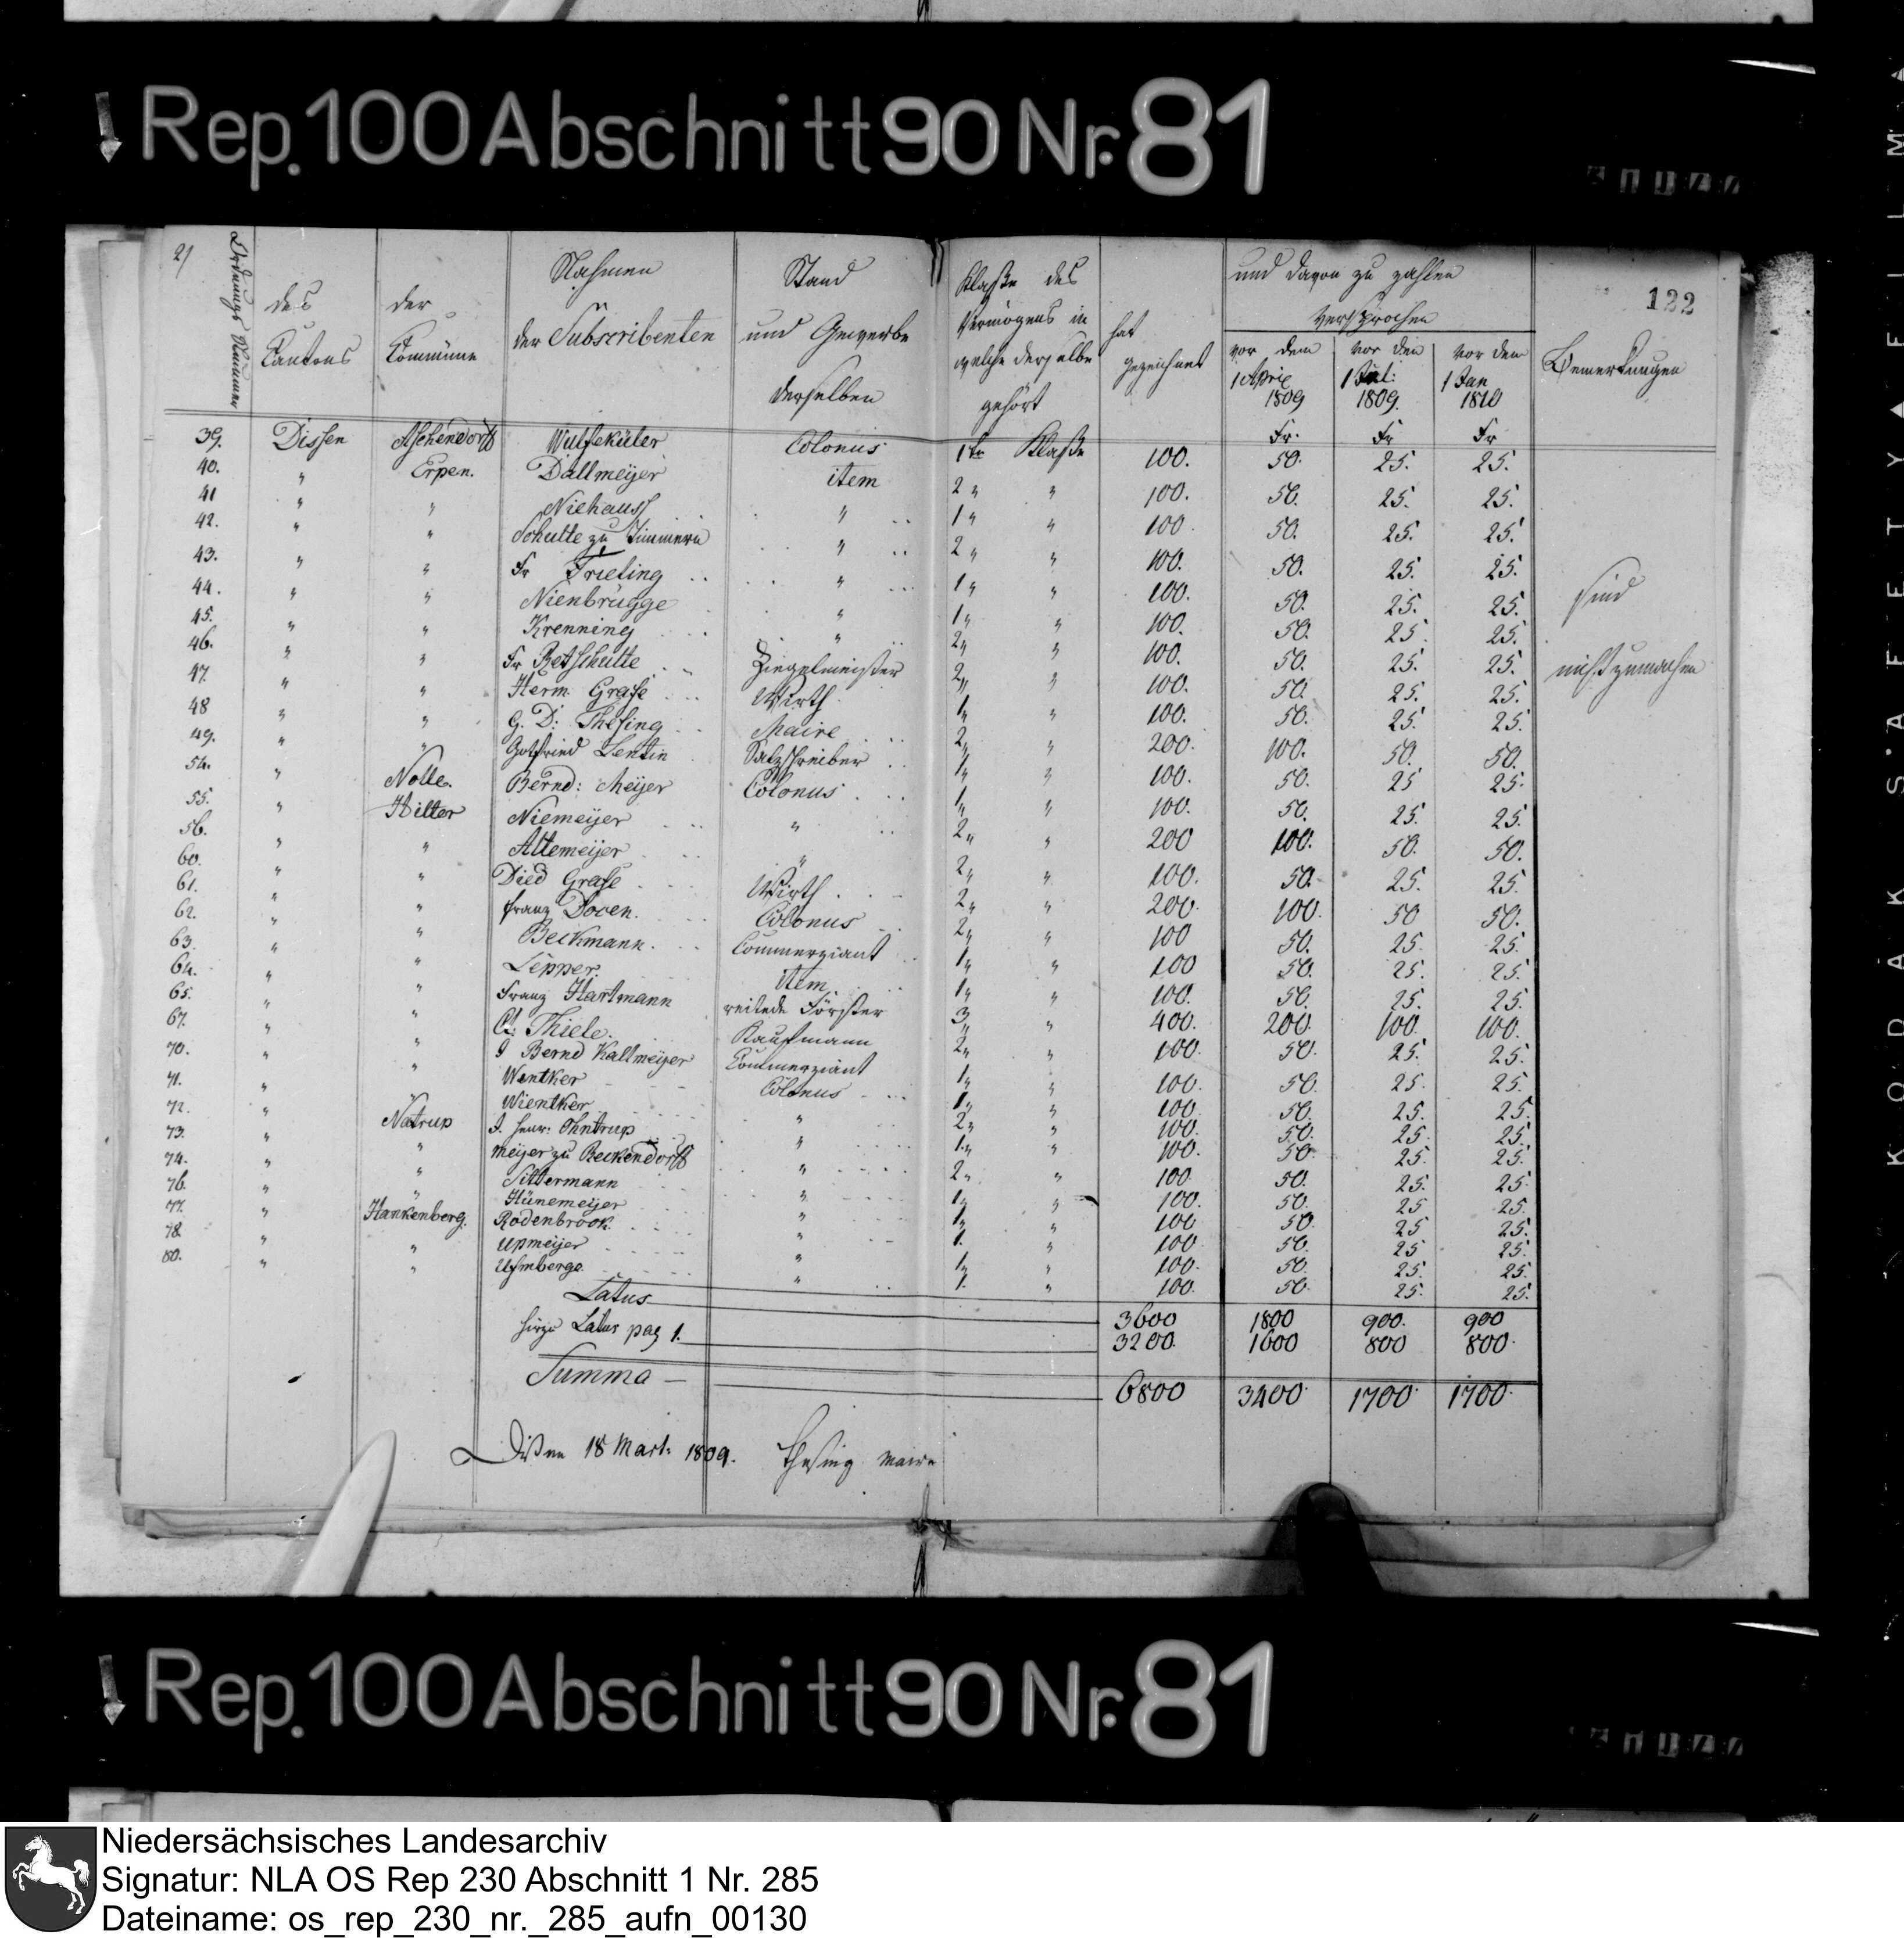 Rep. 100 Abschnitt 90 Nr. 81
2/ 122
Ordnungs Nummer
des Cantons
der Commüne
Nahmen der Subscribenten
Stand und Gewerbe derselben
Klaße des Vermögens in welche derselbe gehört
hat gezeichnet
und davon zu zahlen versprochen
vor dem 1 April 1809
vor dem 1 Jul: 1809.
vor dem 1 Jan 1810
Bemerkungen
Fr. Fr Fr
39. Dissen Aschendorff Wulfeküler Colonus 1te Klaße 100. 50. 25. 25.
40. " Erpen. Dallmeijer item 2 " " 100. 50. 25. 25.
41 " " Niehauss " 1 " " 100 50. 25. 25.
42. " " Schulte zu Timmern " 2 " " 100. 50. 25. 25.
43. " " Fr Frieling " 1 " " 100. 50. 25. 25.
44. " " Nienbrügge " 1 " " 100. 50. 25. 25.
45. " " Krenning " 2 " " 100. 50. 25. 25.
46. " " Fr Retschulte Ziegelmeister 2 " " 100. 50. 25. 25.
47. " " Herm. Grafe Wirth 1 " " 100. 50. 25. 25.
48 " " G. D: Thesing Maire 2 " " 200. 100. 50. 50.
49. " " Gotfried Lentin Salzschreiber 1 " " 100. 50. 25 25.
54. " Nolle. Bernd: Meijer Colonus 1 " " 100. 50. 25. 25.
55. " Hilter Niemeijer " 2 " " 200 100. 50. 50.
56. " " Altemeijer " 2 " " 100. 50. 25. 25.
60. " " Died Grafe Wirth 2 " " 200. 100. 50 50.
61. " " franz Doven. Colonus 2 " " 100 50. 25. 25.
62. " " Beckmann. Commerziant 1 " " 100 50. 25. 25.
63. " " Lepper. item 1 " " 100. 50. 25. 25.
64. " " Franz Hartmann reitede Förster 3 " " 400. 200. 100. 100.
65. " " Thiele. Kaufmann 2 " " 100. 50. 25. 25.
67. " " J Bernd Kallmeijer Commerziant 1 " " 100. 50. 25. 25.
70. " " Wentker Colonus 1 " " 100. 50. 25. 25.
71. " " Wientker " 2 " " 100. 50. 25. 25.
72. " Natrup J. henr: Ohntrup " 1 " " 100. 50. 25. 25.
73. " " meijer zu Reckendorff " 2 " " 100. 50. 25. 25.
74. " " Siltermann " 1 " " 100. 50. 25 25.
76. " " Hünemeijer " 1 " " 100 50. 25 25.
77. " Hankenberg. Rodenbrook. " 1. " 100 50. 25 25.
78. " " Upmeijer " 1 " " 100. 50. 25. 25.
80. " " " 1. " 100. 50. 25. 25.
sind
nicht zu machen
Latus 3600 1800 900. 900
hiezu Latus pag 1. 3200. 1600 800 800.
Summa — 6800 3400. 1700. 1700.
Dißen 18 Mart: 1809. Thesing maire
Rep. 100 Abschnitt 90 Nr. 81
KODAK SAFETY FILM
Niedersächsisches Landesarchiv
Signatur: NLA OS Rep 230 Abschnitt 1 Nr. 285
Dateiname: os_rep_230_nr._285_aufn_00130